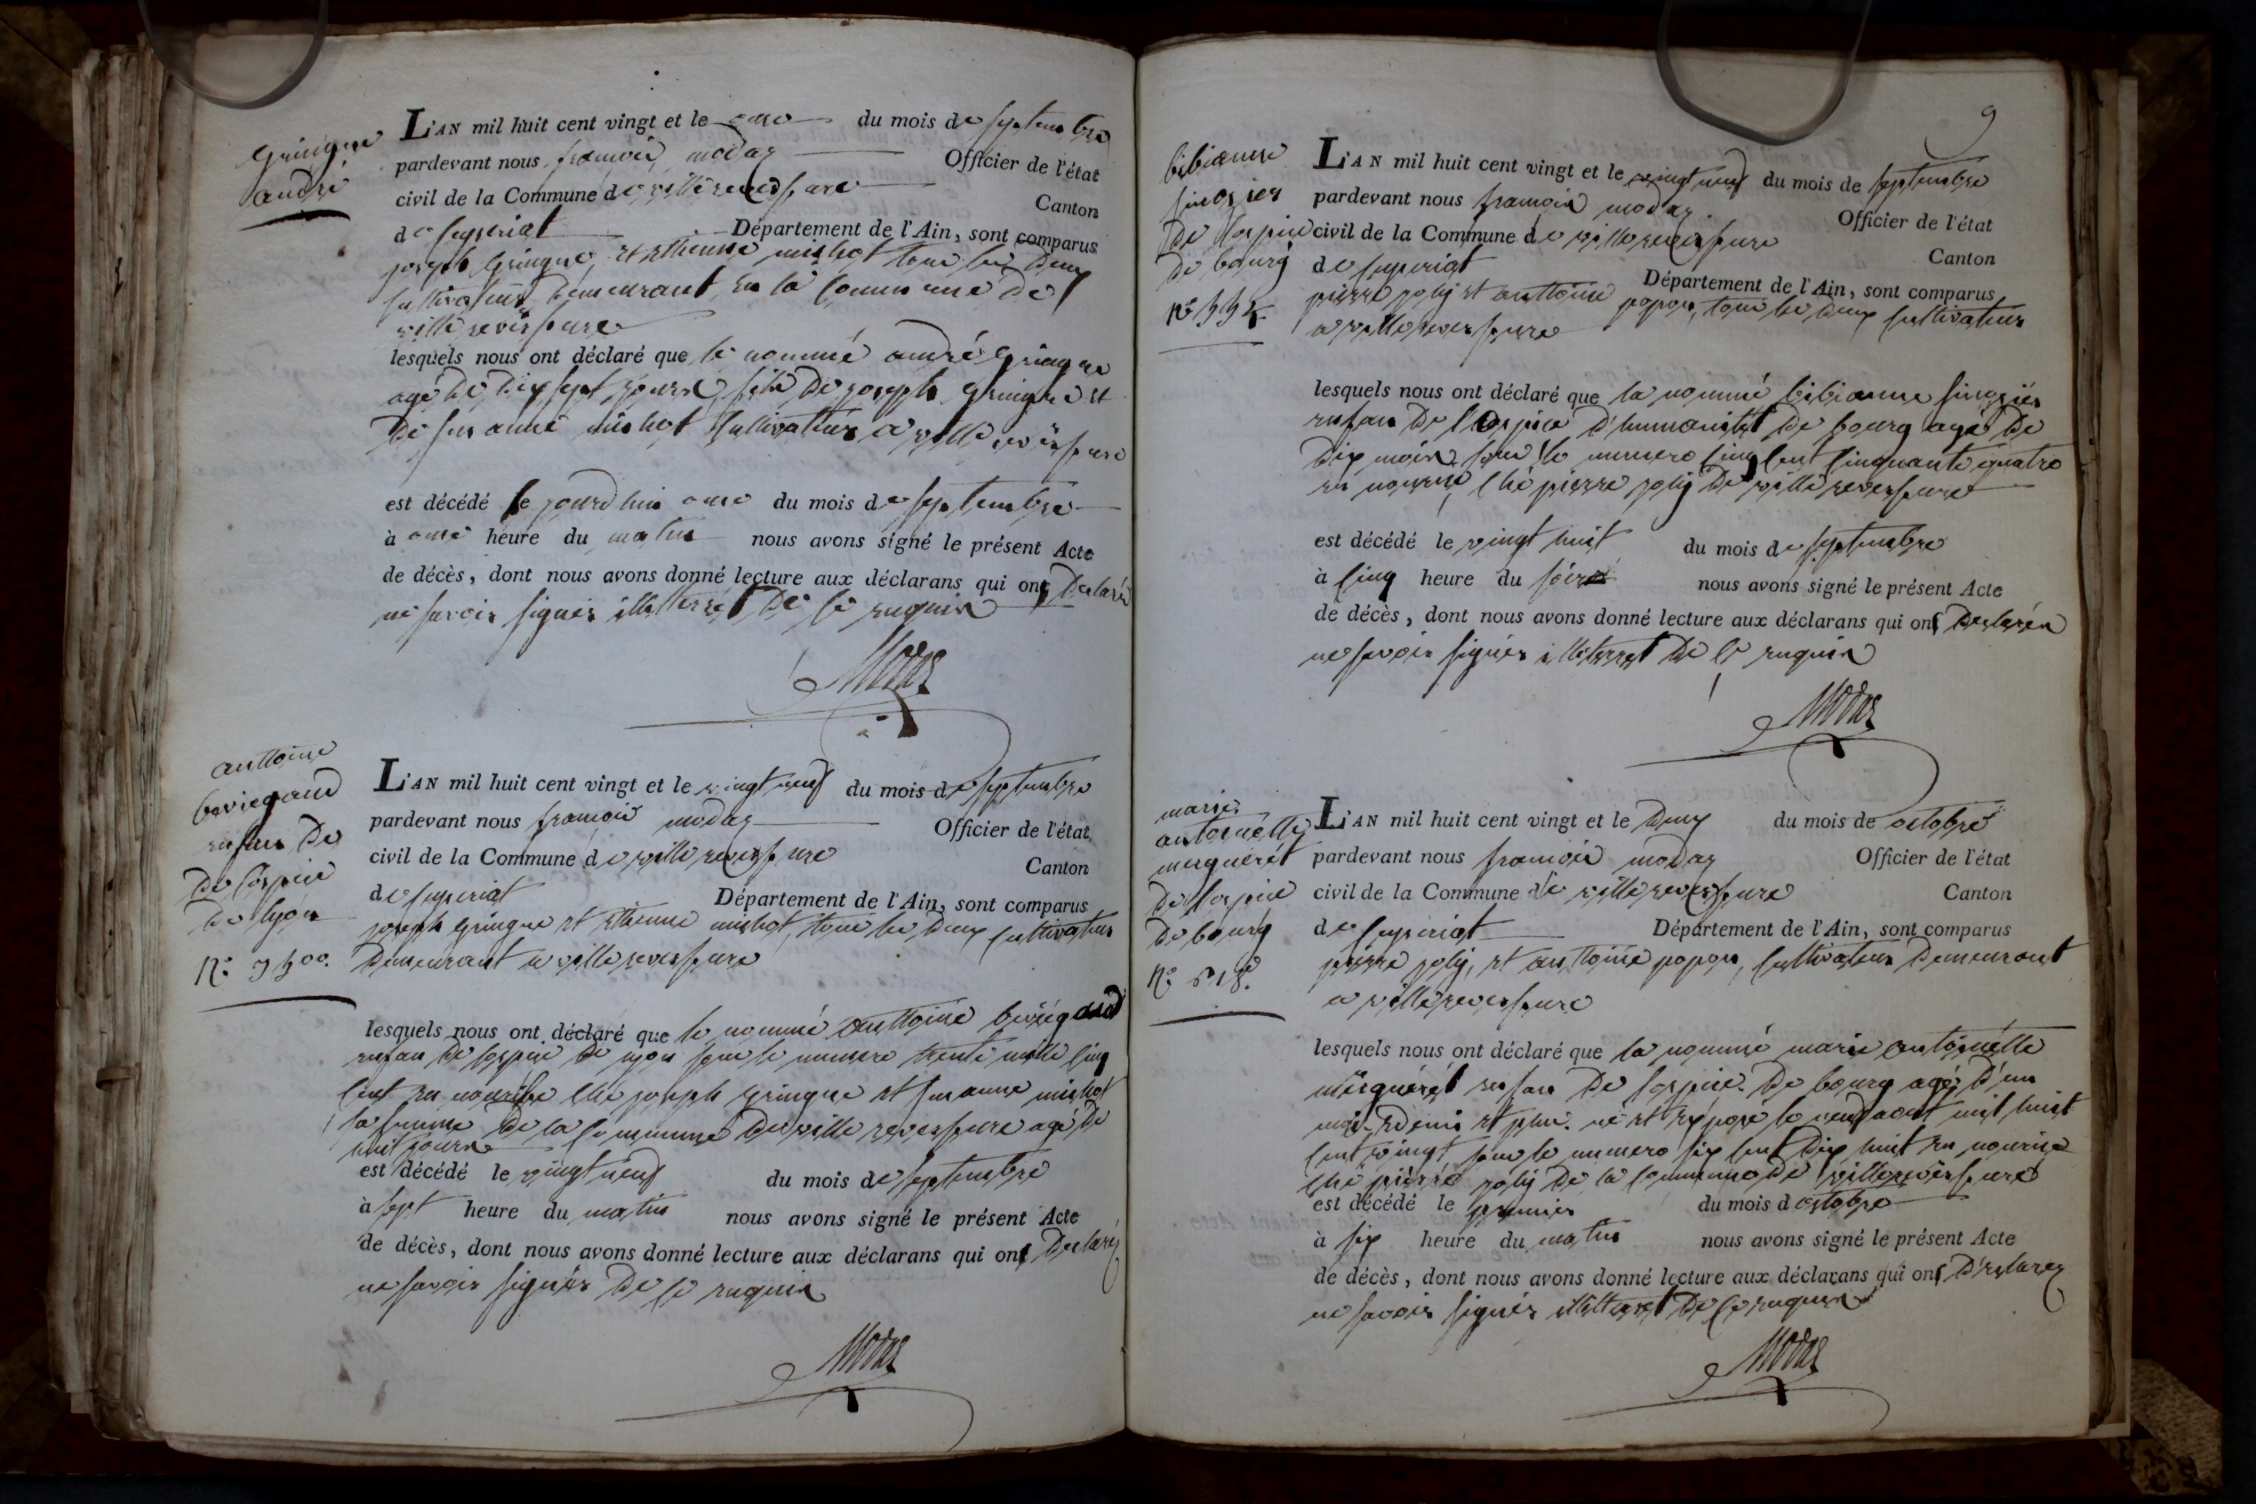 gringne
andré
L'AN mil huit cent vingt et le onse du mois de septembre
pardevant nous françois modas Officier de l'état
civil de la Commune de villereversure Canton
de seyseriat Département de l'Ain, sont comparus
joseph gringne et etienne michot tous les deux
cultivateurs demeurant en la commune de
villereversure
lesquels nous ont déclaré que le nommé andré gringne
agé de dix sept jours fils de joseph gringne et
de susanne michot cultivateur a villereversure
est décédé le jourdhui onse du mois de septembre
à onse heure du matin nous avons signé le présent Acte
de décès, dont nous avons donné lecture aux déclarans qui ont declaré
ne savoir signer illetteret de ce requis
Modas
anttoine
de
de lospice
de lyon
N.
L'AN mil huit cent vingt et le vingt neuf du mois de septembre
pardevant nous françois modas Officier de l'état
civil de la Commune de villereversure Canton
de seyseriat Département de l'Ain, sont comparus
joseph gringne et etienne michot, tous les deux cultivateurs
demeurant a villereversure
lesquels nous ont déclaré que le nommé anttoine
enfan de lospice de lyon sous le numero trente mille cinq
cent en nourise ché joseph gringne et susanne michot
sa femme de la commune de villereversure agé de
huit jours
est décédé le vingt neuf du mois de septembre
à sept heure du matin nous avons signé le présent Acte
de décès, dont nous avons donné lecture aux déclarans qui ont declaré
ne savoir signer de ce requis
Modas
9
bibianne
de lospice
de bourg
N° 554
L'AN mil huit cent vingt et le vingt neuf du mois de septembre
pardevant nous françois modas Officier de l'état
civil de la Commune de villereversure Canton
de seyseriat Département de l'Ain, sont comparus
pierre joly et anttoine popon, tous les deux cultivateurs
a villereversure
lesquels nous ont déclaré que la nommé bibianne
enfan de l'ospice d'humanité de bourg agé de
dix mois sous le numero cinq cent cinquante quatre
en nourise ché pierre joly de villereversure
est décédé le vingt huit du mois de septembre
à cinq heure du soir nous avons signé le présent Acte
de décès, dont nous avons donné lecture aux déclarans qui ont declaré
ne savoir signer illetteret de ce requis
Modas
marie
antoinette
de lospice
de bourg
N° 618.
L'AN mil huit cent vingt et le deux du mois de octobre
pardevant nous françois modas Officier de l'état
civil de la Commune de villereversure Canton
de seyseriat Département de l'Ain, sont comparus
pierre joly, et anttoine popon, cultivateurs demeurant
a villereversure
lesquels nous ont déclaré que la nommé marie antoinette
enfan de lospice de bourg agé d'un
mois demi et plus né et exposé le neuf aout mil huit
cent vingt sous le numero six cent dix huit en nourise
ché pierre joly de la commune de villereversure
est décédé le premier du mois d octobre
à six heure du matin nous avons signé le présent Acte
de décès, dont nous avons donné lecture aux déclarans qui ont declarez
ne savoir signer illetteret de ce requis
Modas